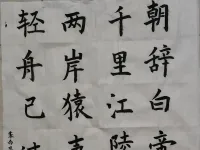 朝辞白帝
千里江陵
两岸猿声
轻舟已